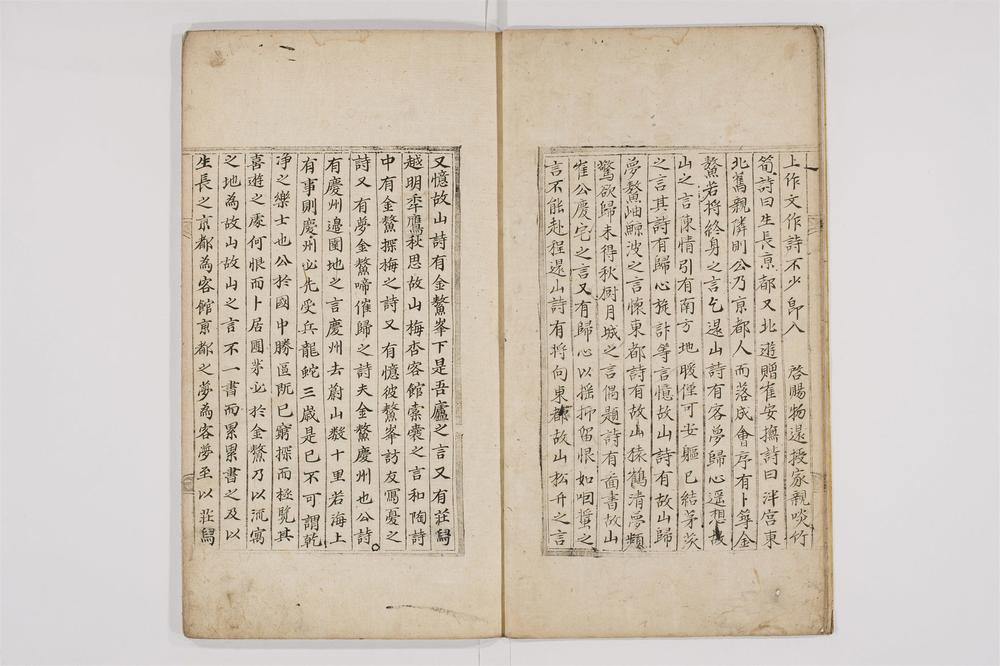 上作文作詩不少即入 啓賜物還授家親啖竹
筍詩曰生長京都又北遊贈崔安撫詩曰泮宮東
北舊親隣則公乃京都人而落成會序有卜築金
鰲若將終身之言乞還山詩有客夢歸心遥想故
山之言陳情引有南方地暖僅可安軀已結茅茨
之言其詩有歸心旄詳等言憶故山詩有故山歸
夢鰲岫鯨波之言懷東都詩有故山猿鶴清夢頻
驚欲歸未得秋厨月城之言偶題詩有面書故山
崔公慶宅之言又有歸心以搖抑留恨如咽蜇之
言不能赴程還山詩有將向東都故山松竹之言
又憶故山詩有金鰲峯下是吾廬之言又有莊舄
越明年鷹秋思故山梅杏客館槖囊之言和陶詩
中有金鰲探梅之詩又有憶彼鰲峯訪友寫憂之
詩又有夢金鰲啼催歸之詩夫金鰲慶州也公詩
有慶州邉圉地之言慶州去蔚山數十里若海上
有事則慶州必先受兵龍蛇三歲是已不可謂乾
净之樂士也公於國中勝區旣已窮探而極覽其
喜遊之處何恨而卜居團茅必於金鰲乃以流寓
之地為故山故山之言不一書而累累書之及以
生長之京都為客館京都之夢為客夢至以莊舄